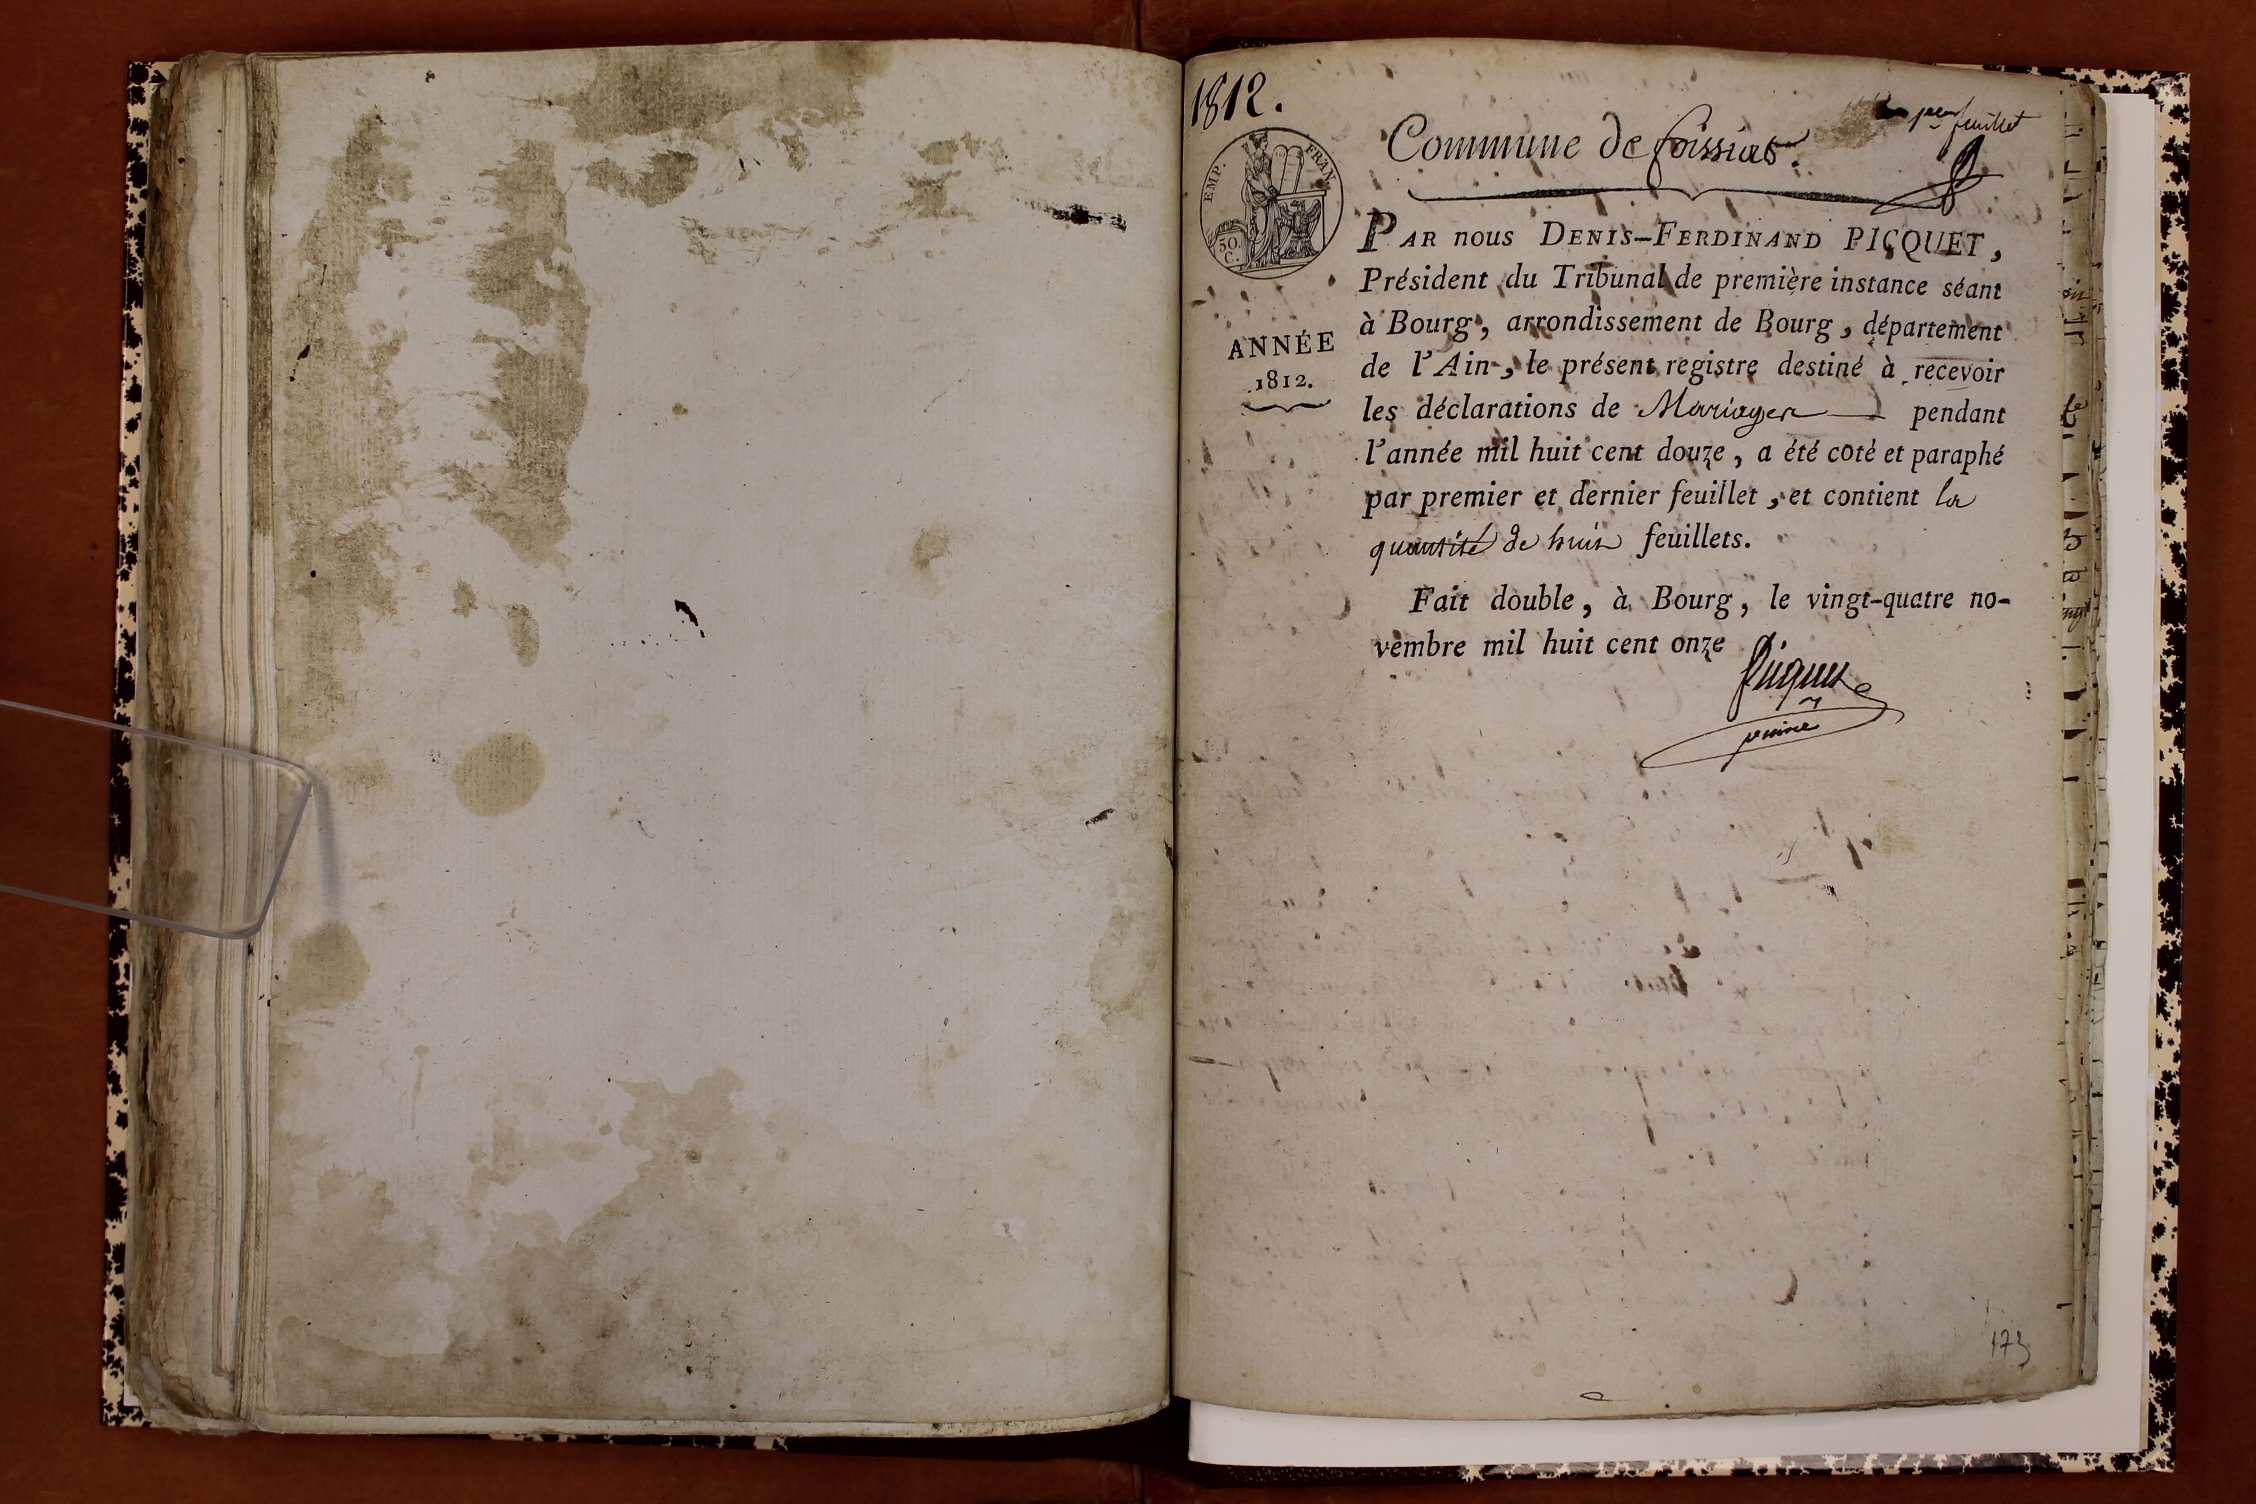 1812.
1er feuillet
Commune de foissiat.
EMP. FRAN.
50.
C.
PAR nous DENIS-FERDINAND PICQUET,
Président du Tribunal de première instance séant
à Bourg, arrondissement de Bourg, département
de l'Ain, le présent registre destiné à recevoir
les déclarations de Mariages pendant
l'année mil huit cent douze, a été coté et paraphé
par premier et dernier feuillet, et contient la
quantité de huit feuillets.
ANNÉE
1812.
Fait double, à Bourg, le vingt-quatre no-
vembre mil huit cent onze
Picquet
173